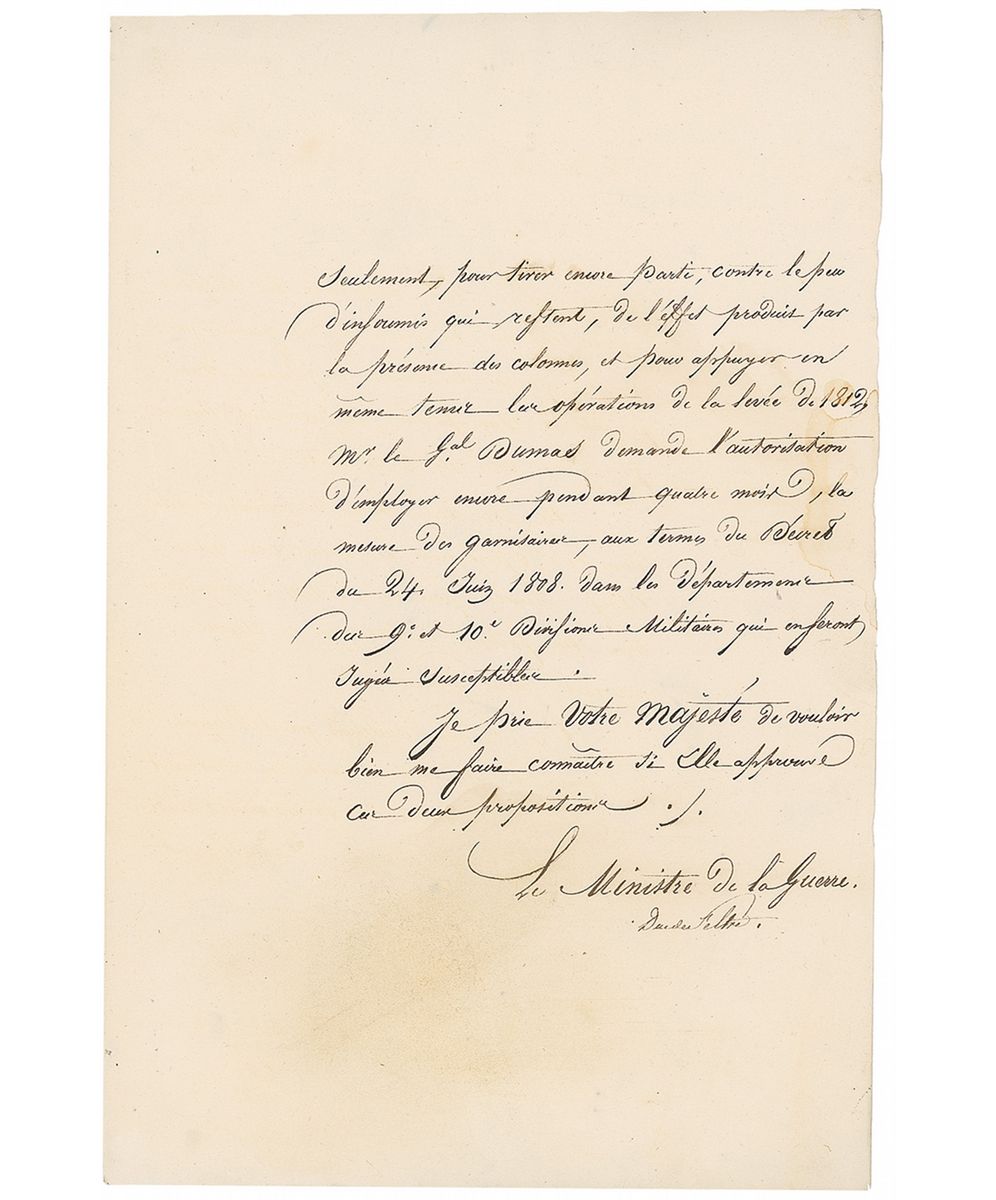 Seulement, pour tirer encore parti, contre le peu
d'insoumis qui restent, de l'effet produit par
la présence des colonnes, et pour appuyer en
même tems les opérations de la levée de 1812,
Mr. le Gal. Dumas demande l'autorisation
d'employer encore pendant quatre mois, la
mesure des garnisaires, aux termes du Décret
du 24 Juin 1808. dans les Départemens
des 9e. et 10e. Divisions Militaires qui en seront
Jugés susceptibles.
Je prie Votre Majesté de vouloir
bien me faire connaître si Elle approuve
ces deux propositions ./.
Le Ministre de la Guerre.
Duc de Feltre.